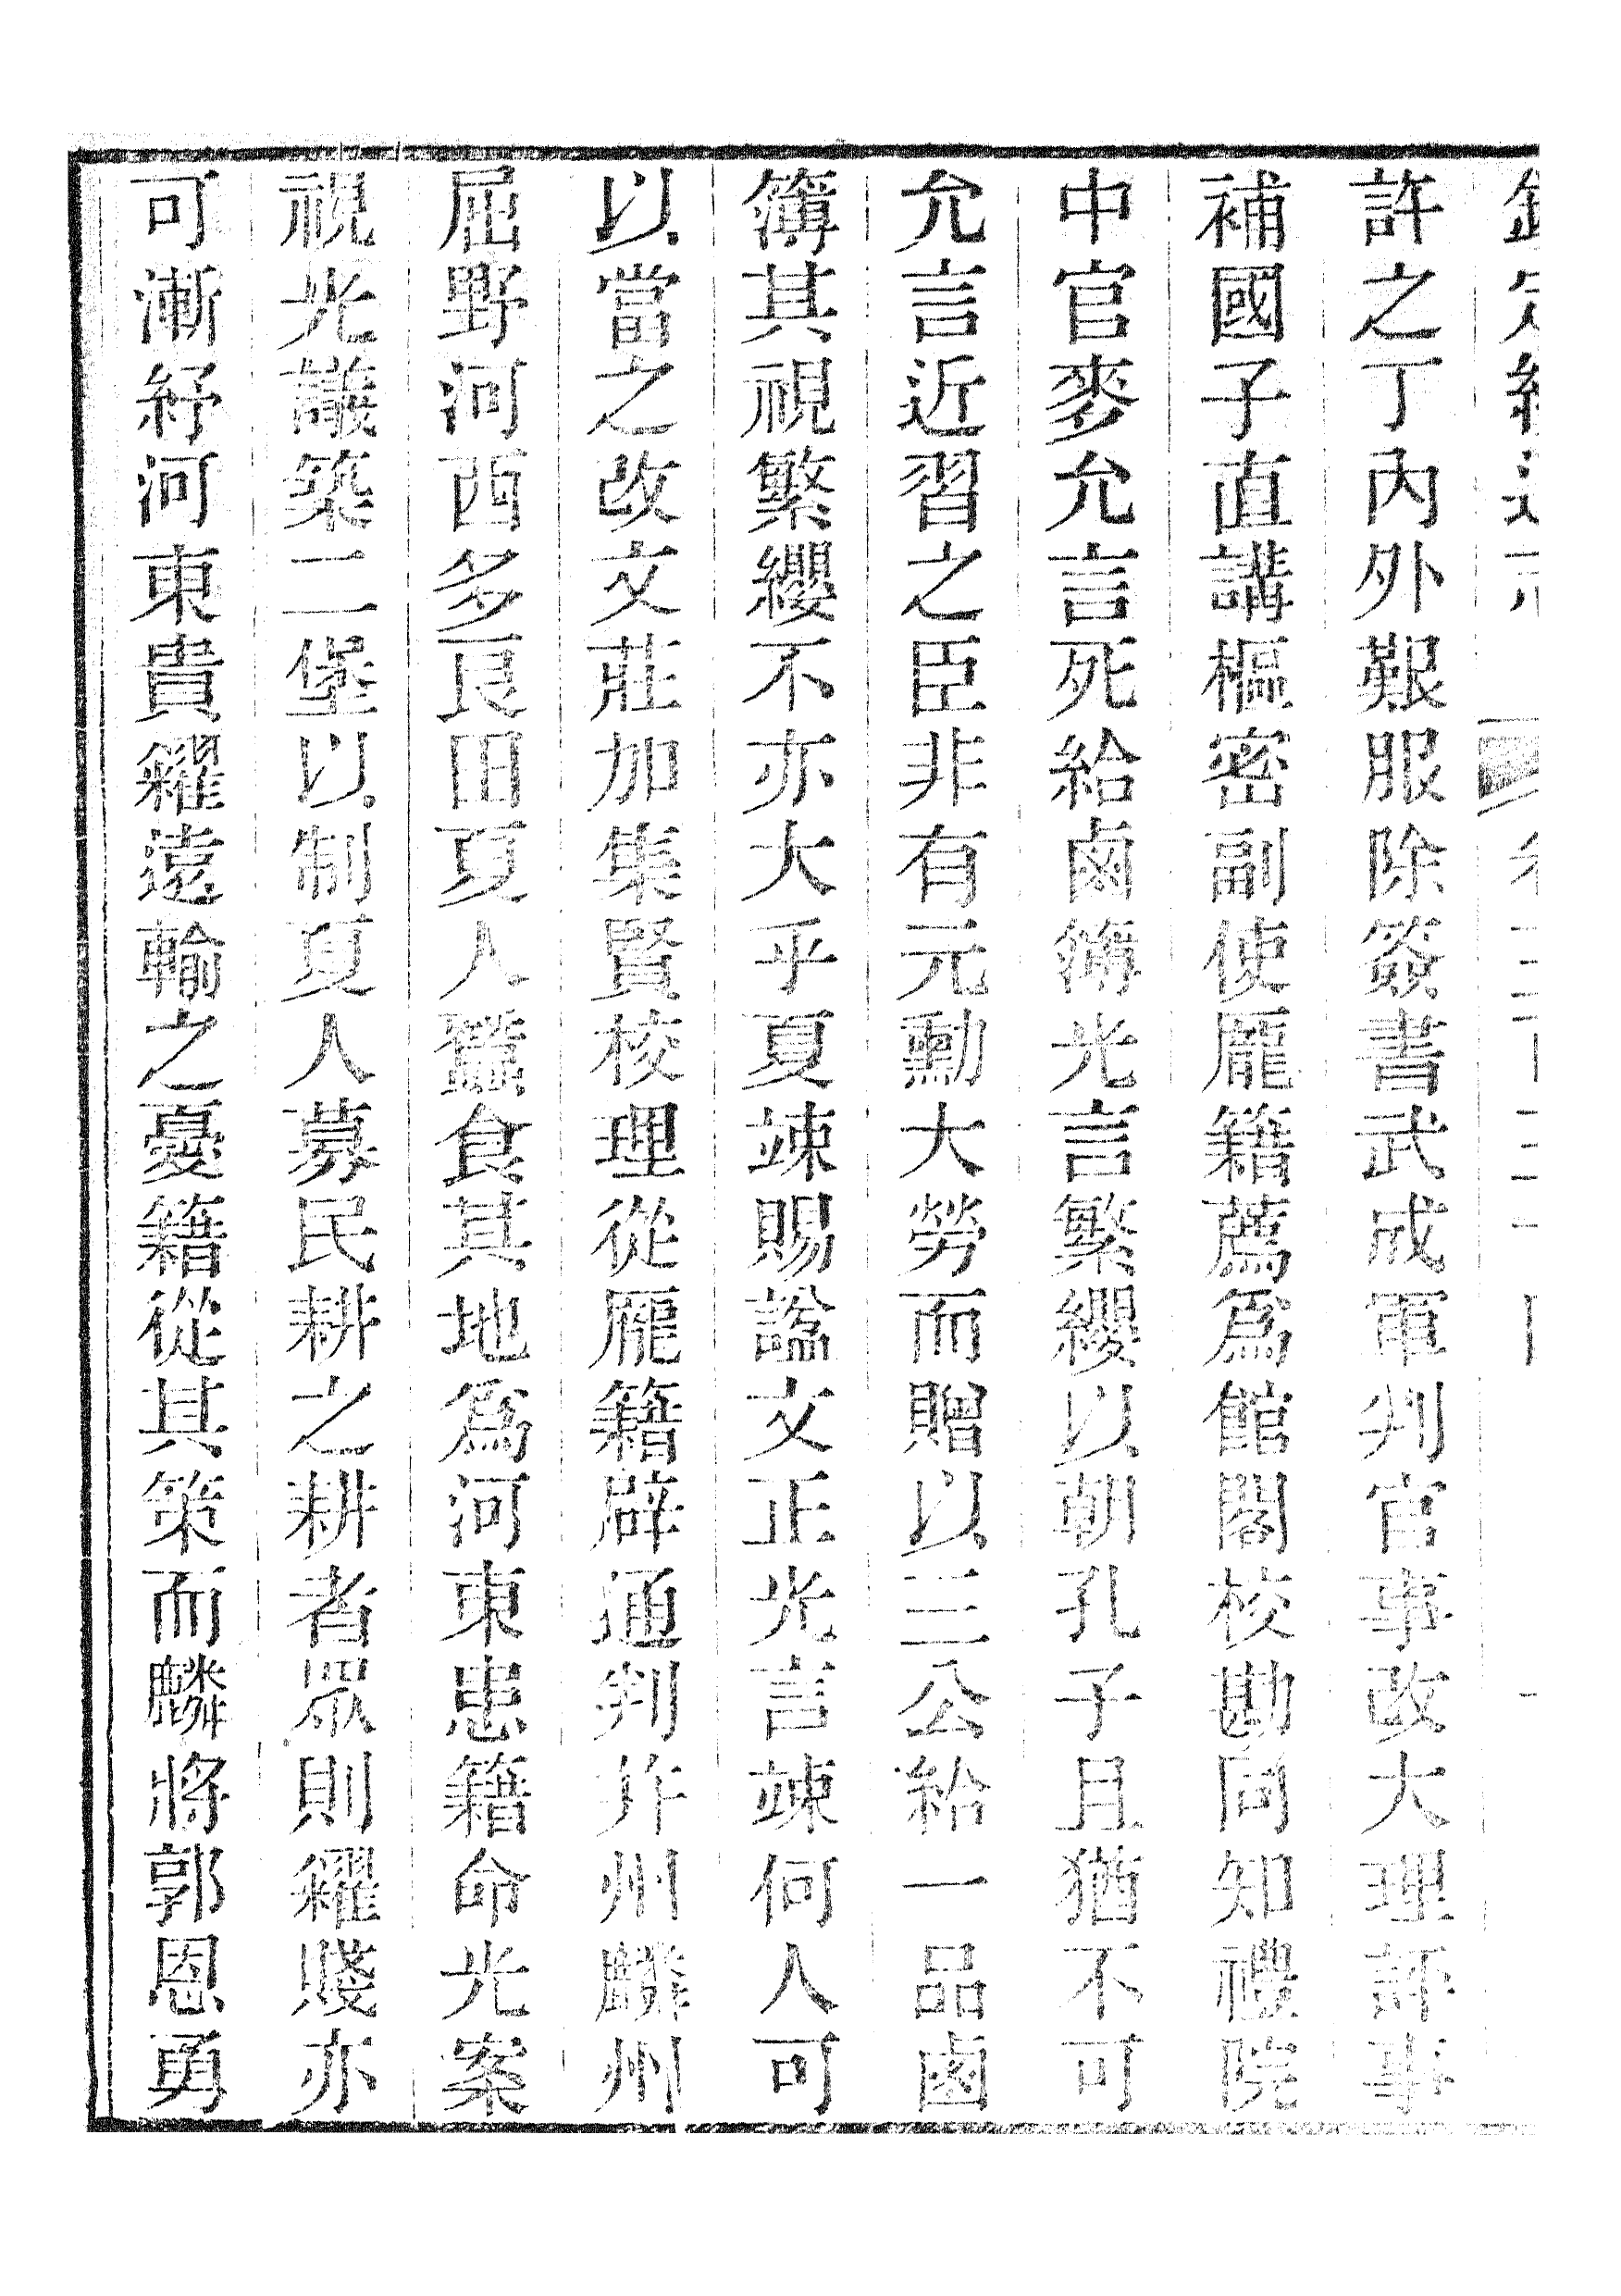 許之丁內外艱服除簽書武成軍判官事改大理評事
補國子直講樞密副使龐籍薦爲館閣校勘同知禮院
中官麥允言死給鹵簿光言繁纓以朝孔子且猶不可
允言近習之臣非有元勳大勞而贈以三公給一品鹵
簿其視繁纓不亦大乎夏竦賜諡文正光言竦何人可
以當之改文莊加集賢校理從龐籍辟通判并州麟州
屈野河西多良田夏人蠶食其地爲河東患籍命光案
視光議築二堡以制夏人募民耕之耕者眾則糴賤亦
可漸紓河東貴糴遠輸之憂籍從其策而麟將郭恩勇